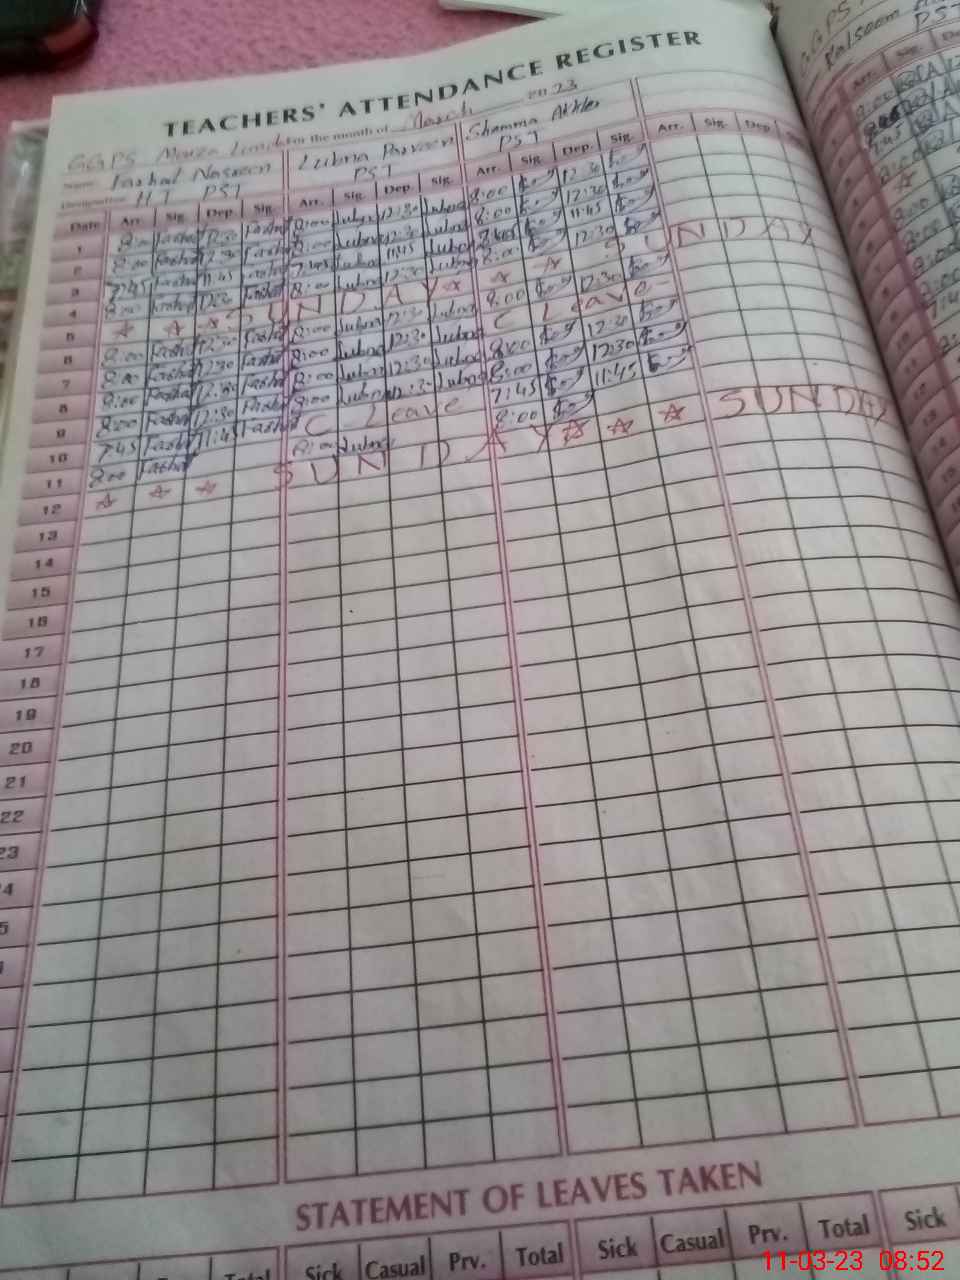 TEACHERS' ATTENDANCE REGISTER
GGPS Mouza Lund For the month of March 2023
Name Farhat Nasreen Lubna Parveen Shamma Akhter
Designation HT PST PST PST
Date Arr. Sig. Dep. Sig. Arr. Sig. Dep. Sig. Arr. Sig. Dep. Sig. Arr. Sig. Dep.
1 8:00 Farhat 12:30 Farhat 8:00 Lubna 12:30 Lubna 8:00 12:30
2 8:00 Farhat 12:30 Farhat 8:00 Lubna 12:30 Lubna 8:00 12:30
3 7:45 Farhat 11:45 Farhat 7:45 Lubna 11:45 Lubna 7:45 11:45
4 8:00 Farhat 12:30 Farhat 8:00 Lubna 12:30 Lubna 8:00 12:30
5 SUNDAY SUNDAY
6 8:00 Farhat 12:30 Farhat 8:00 Lubna 12:30 Lubna 8:00 12:30
7 8:00 Farhat 12:30 Farhat 8:00 Lubna 12:30 Lubna C Leave
8 8:00 Farhat 12:30 Farhat 8:00 Lubna 12:30 Lubna 8:00 12:30
9 8:00 Farhat 12:30 Farhat 8:00 Lubna 12:30 Lubna 8:00 12:30
10 7:45 Farhat 11:45 Farhat C Leave 7:45 11:45
11 8:00 Farhat 8:00 Lubna 8:00
12 SUNDAY SUNDAY
13
14
15
16
17
18
19
20
21
22
23
STATEMENT OF LEAVES TAKEN
Total Sick Casual Prv. Total Sick Casual Prv. Total Sick
11-03-23 08:52